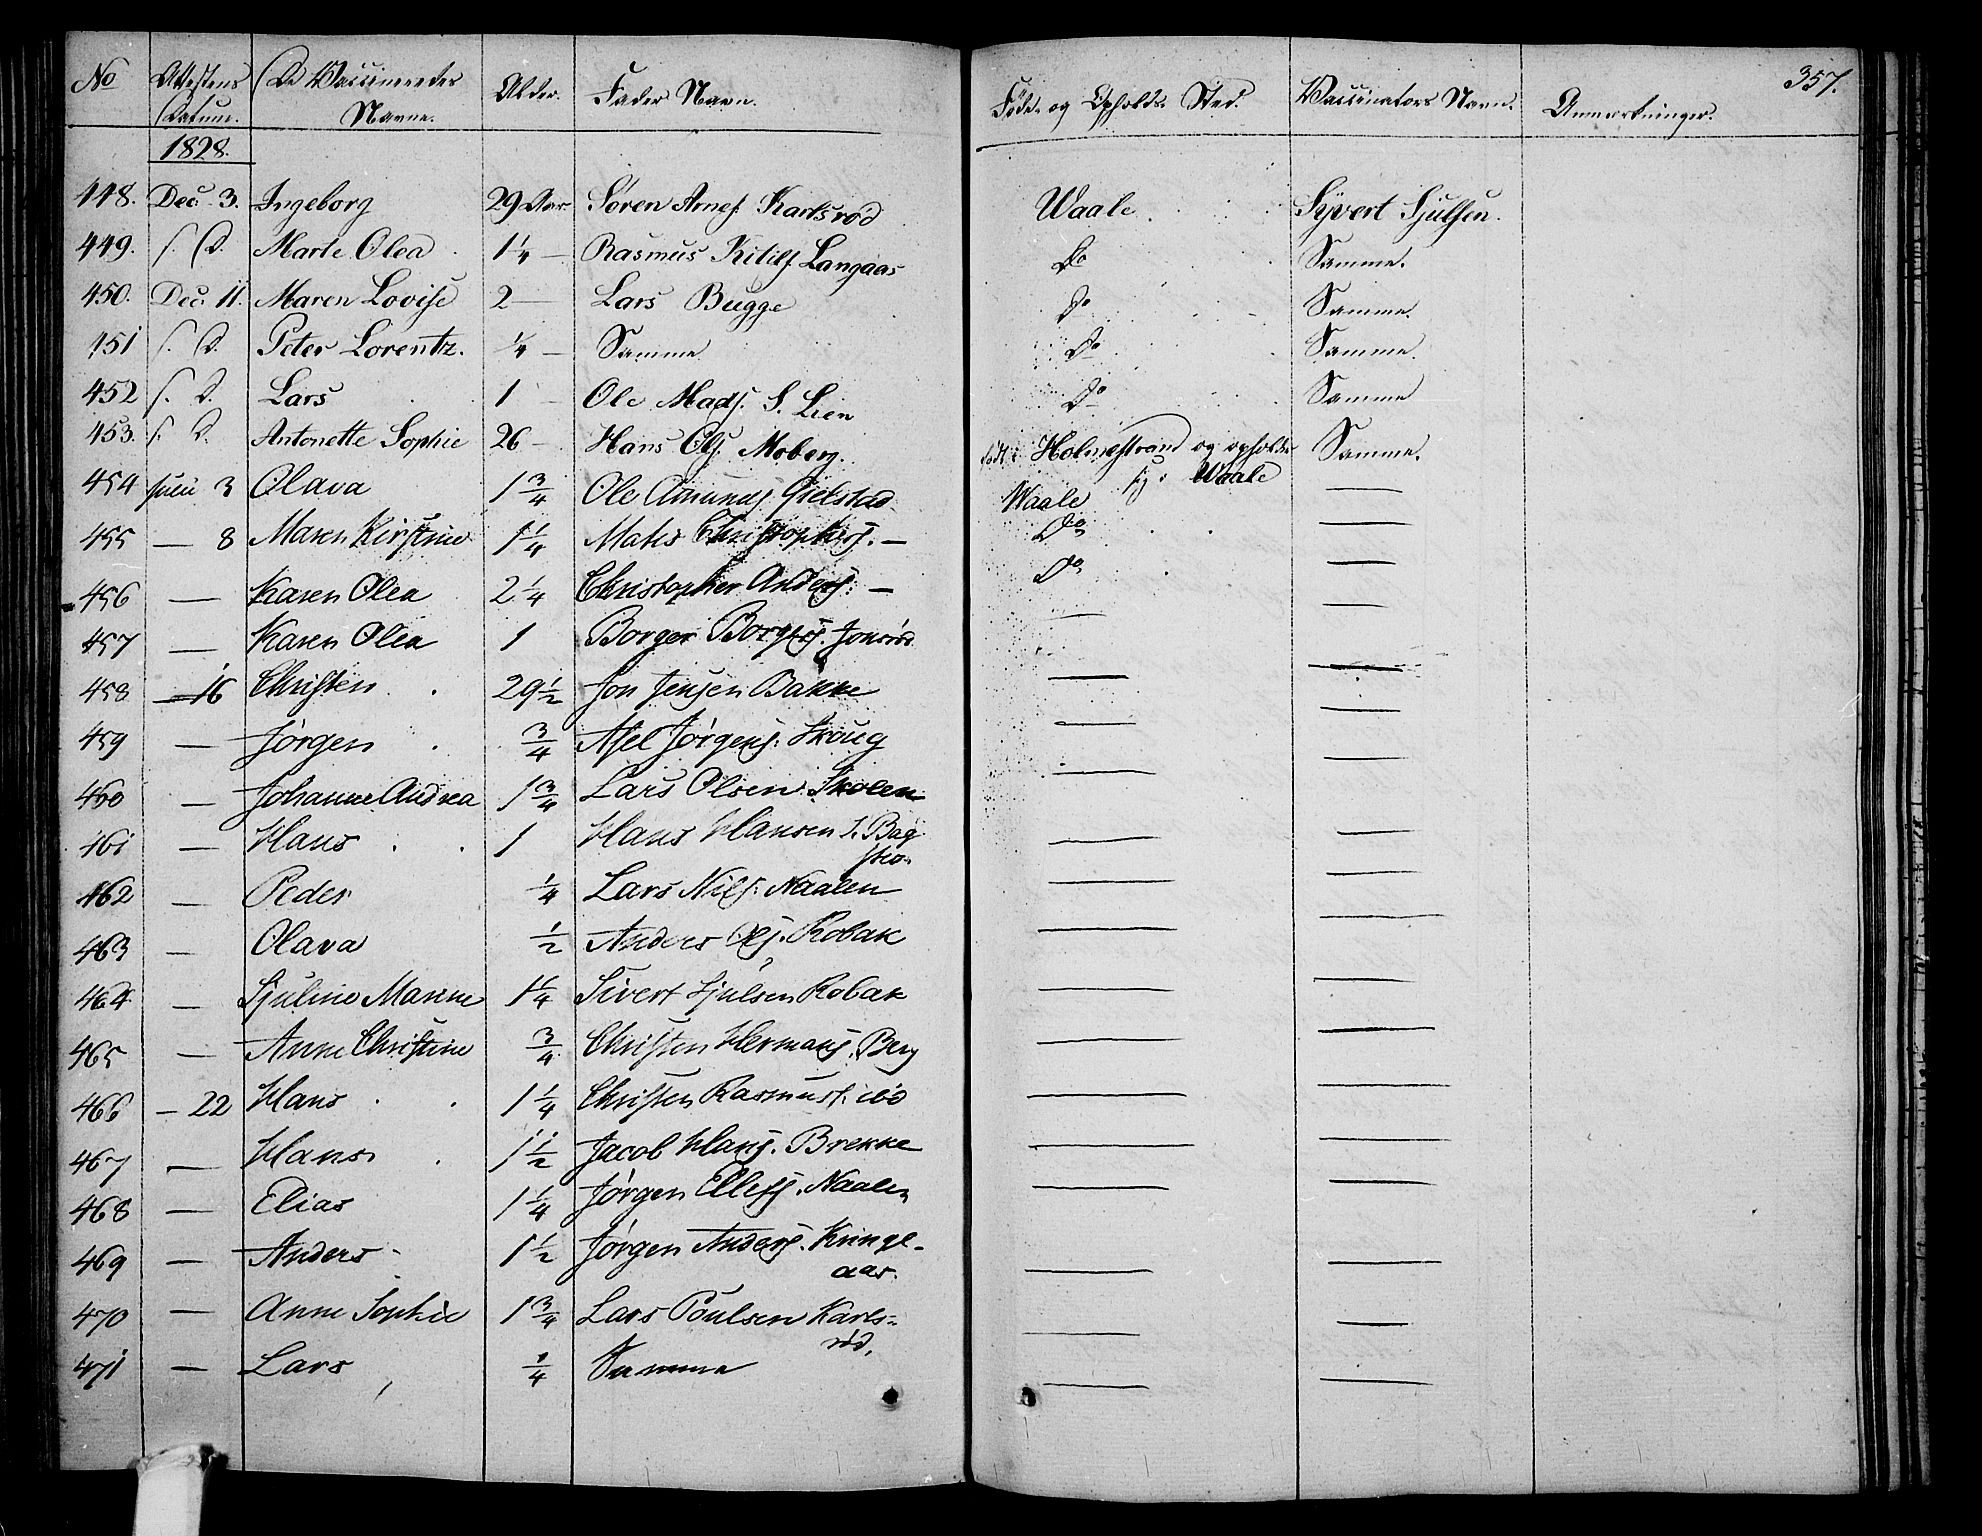 No Attestens Datum. De Vaccineredes Navne. Alder. Fader Navn. Føde- og Opholds- Sted. Vaccinators Navn. Anmærkninger. 357.
1828.
448. Dec. 3. Ingeborg 29 Aar Søren Arnes. Karlsrød Waale Syvert Sjulsen.
449. s. D. Marte Olea 1 1/4 — Rasmus Kitils. Langaas Do Samme.
450. Dec. 11. Maren Lovise 2 — Lars Bugge Do Samme.
451 s. D. Peter Lorentz. 1/4 — Samme Do Samme.
452 s. D. Lars 1 — Ole Mads. S. Lien Do Samme
453. s. D. Antonette Sophie 26 — Hans Ols. Moberg. født i Holmestrand og opholder Samme.
sig i Waale
454 3 Olava 1 3/4 Ole Amunds. Gielstad Waale —
455 — 8 Maren Kirstine 1 1/4 Mats Christophers. — Do —
456 — Karen Olea 2 1/4 Christopher Anders: — Do —
457 — Karen Olea 1 Borger Borgers. Jonsrød — —
458 — 16 Christen 29 1/2 Jon Jensen Bakke — —
459 — Jørgen 3/4 Axel Jørgens. Skoug — —
460 — Johanne Andrea 1 3/4 Lars Olsen Skolen — —
461 — Hans 1 Hans Hansen S. Bag — —
462 — Peder 1/4 Lars Nils. Naalen — —
463 — Olava 1/2 Anders Ols. Robak — —
464 — Sjuline Marine 1 1/4 Sivert Sjulsen Robak — —
465 — Anne Christine 3/4 Christen Hermans. Berg — —
466 — 22 Hans 1 1/4 Christen Rasmus. — —
467 — Hans 1 1/2 Jacob Hans. Brekke — —
468 — Elias 1 1/4 Jørgen Ellefs. Naalen — —
469 — Anders 1 1/2 Jørgen Anders. Kringe-
aas. — —
470 — Anne Sophie 1 3/4 Lars Poulsen Karls-
rød. — —
471 — Lars 1/4 Samme — —